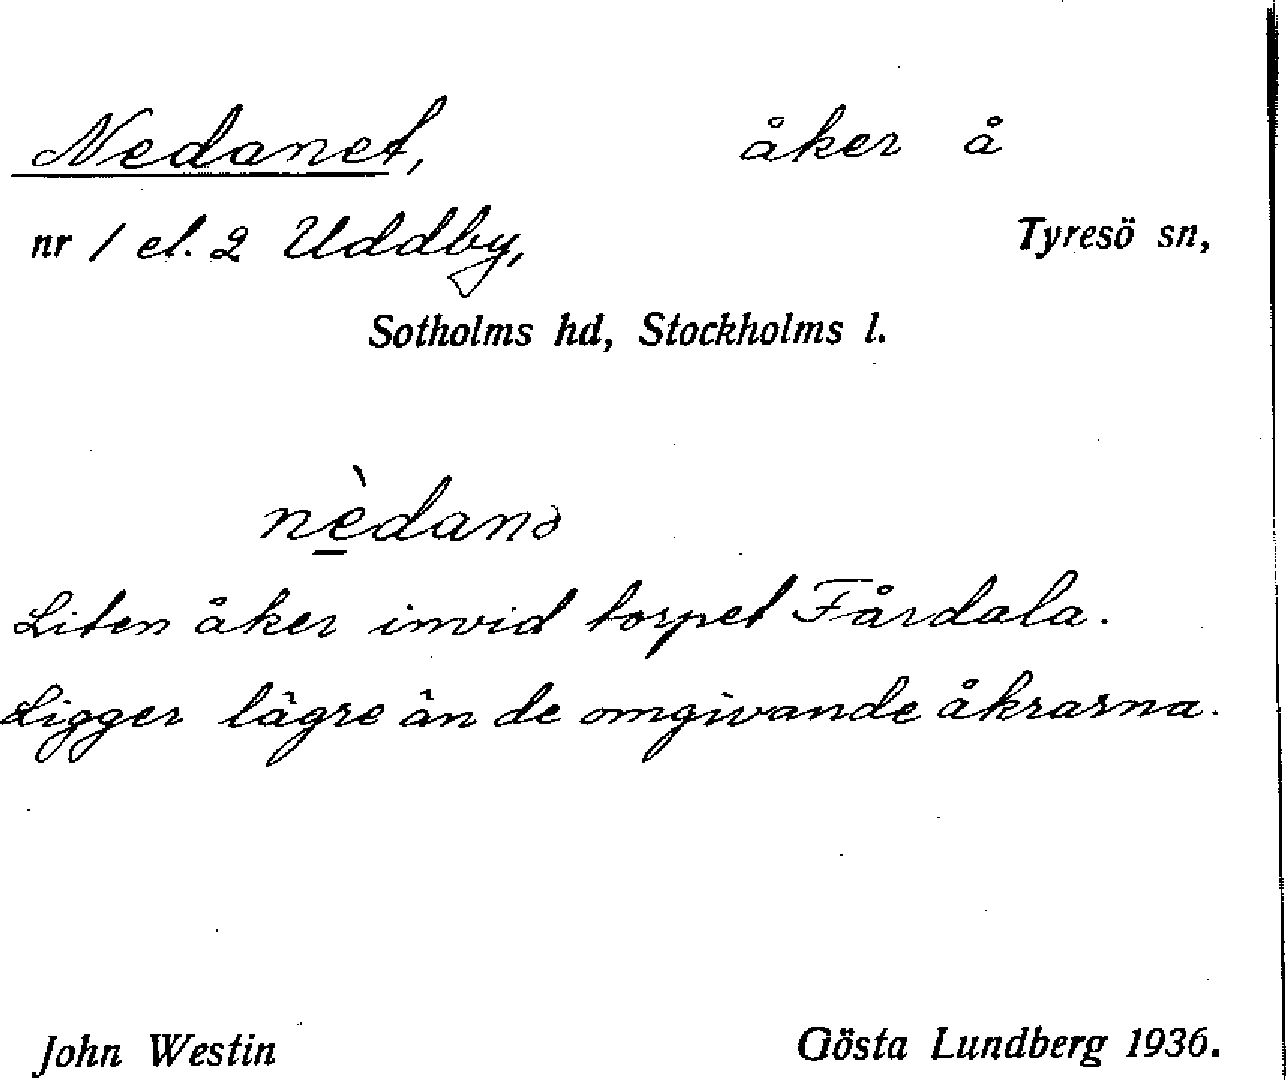 Nedanet, åker å
nr 1 el. 2 Uddby, Tyresö sn,
Sotholms hd, Stockholms l.
nè̲danə
Liten åker invid torpet Fårdala.
Ligger lägre än de omgivande åkrarna.
John Westin Gösta Lundberg 1936.